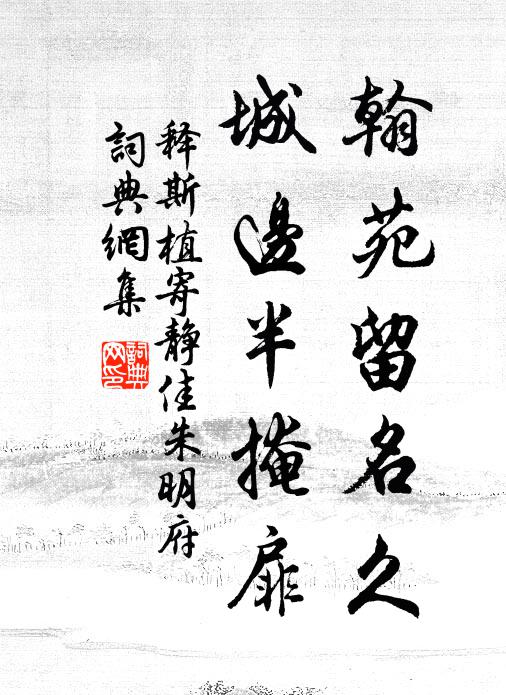 翰苑留名久
城邊半掩扉
释斯植寄静佳朱明府
詞典網集
詞典网印